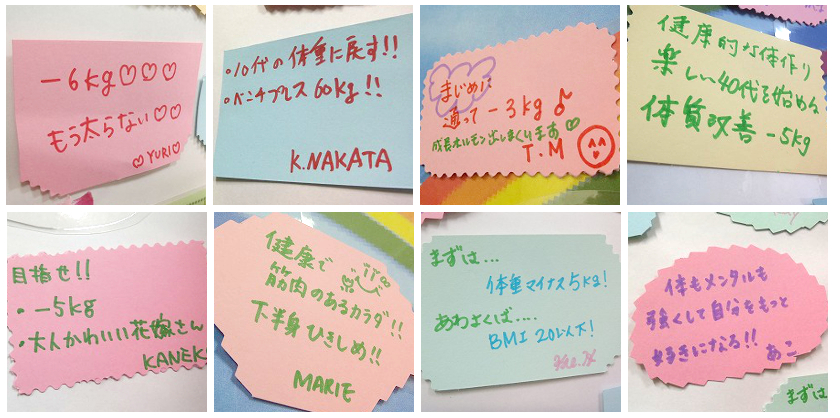 -6kg♡♡♡
もう太らない♡♡
♡YURI♡
・10代の体重に戻す!!
・ベンチプレス60kg!!
K.NAKATA
まじめに
通って-3kg♪
成長ホルモン出しまくります♡
T.M
健康的な体作り
楽しい40代を始める
体質改善-5kg
目指せ!!
・-5kg
・大人かわいい花嫁さん
KANEK
健康で
筋肉のあるカラダ!!
下半身ひきしめ!!
MARIE
まずは...
体重マイナス5kg!
あわよくば....
BMI 20以下!
体もメンタルも
強くして自分をもっと
好きになる!! あこ
まずは